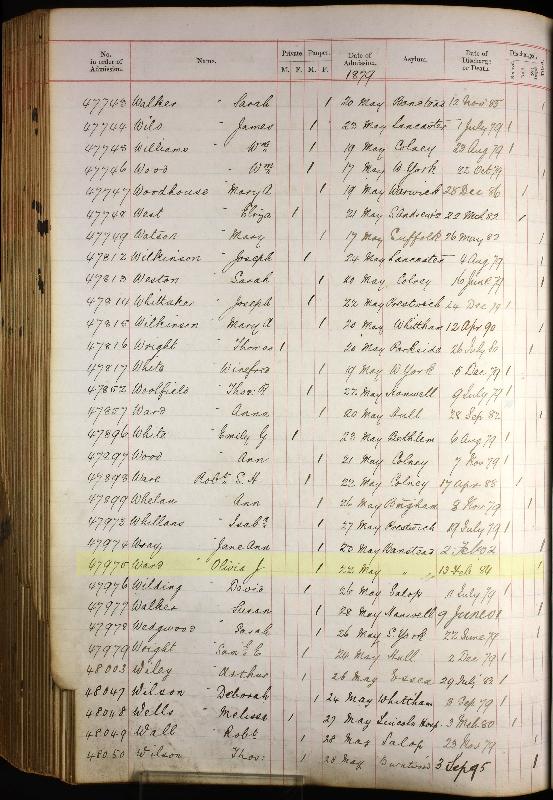 No. in order of Admission. Name. Private Pauper. Date of Admission. Asylum. Date of Discharge or Death. Discharge.
M. F. M. F. 1879
47743 Walker " Sarah 1 20 May Banstead 12 Nov 85
47744 Wild " James 1 23 May Lancaster 1 July 79 1
47745 Williams " Wm 1 19 May Colney 23 Aug 79 1
47746 Wood " Wm 1 17 May W York 22 Oct 79 1
47747 Woodhouse " Mary A 1 19 May Warwick 28 Dec 86 1
47748 West " Eliza 1 21 May 22 Mch 82 1
47749 Watson " Mary 1 17 May Suffolk 26 May 82 1
47812 Wilkinson " Joseph 1 24 May Lancaster 4 Aug 79 1
47813 Weston " Sarah 1 20 May Colney 16 June 79 1
47814 Whittaker " Joseph 1 22 May Prestwich 24 Dec 79 1
47815 Wilkinson " Mary A 1 20 May Whittham 12 Apr 90 1
47816 Wright " Thomas 1 20 May Parkside 26 July 80 1
47817 White " 1 19 May W York 5 Dec 79 1
47852 Woolfield " Thos. 1 22 May Hanwell 9 July 79 1
47857 Ward " Anna 1 20 May Hull 28 Sep 82 1
47896 White " Emily G 1 23 May Bethlem 6 Aug 79 1
47897 Wood " Ann 1 21 May Colney 7 Nov 79 1
47898 Ware Robt S. H 1 22 May Colney 17 Apr 88 1
47899 Whelan " Ann 1 26 May Bingham 8 Nov 79 1
47973 Whittans " Isaba 1 27 May Prestwich 19 July 79 1
47974 Wray " Jane Ann 1 23 May Banstead 2 Feb 02 1
47975 Ward " Olivia J. 1 22 May " " 13 Feb 84 1
47976 Wilding " David 1 26 May Salop 11 July 79 1
47977 Walker " Susan 1 28 May Hanwell 9 June 08 1
47978 Wedgwood " Sarah 1 26 May S. York 22 June 79 1
47979 Wright " E 1 24 May Hull 2 Dec 79 1
48003 Wiley " Arthur 1 26 May Essex 29 July 83 1
48047 Wilson " Deborah 1 24 May Whittham 8 Sep 79 1
48048 Wells " Melissa 1 27 May Lincoln Hosp. 3 Mch 80 1
48049 Wall " Robt. 1 28 May Salop 23 Nov 79 1
48050 Wilson " Thos: 1 28 May 3 Sep 95 1